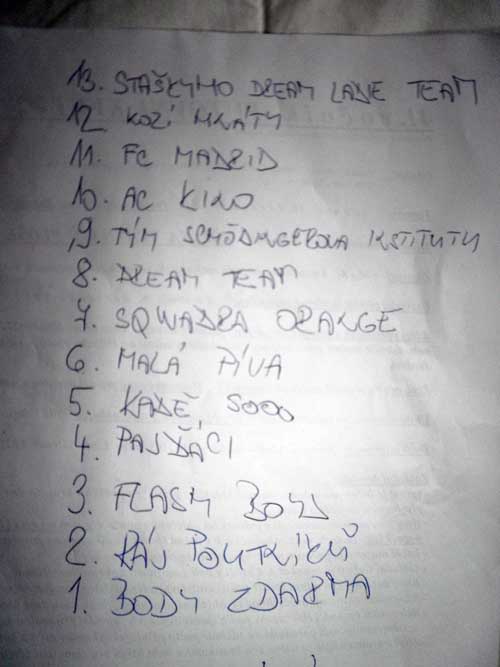 13. STAŠKYMO DREAM LADE TEAM
12. KOZÍ MRÁTY
11. FC MADRID
10. AC KINO
9. TÝM SCHÖDINGEROVA INSTITUTU
8. DREAM TEAM
7. SQWADRA ORANGE
6. MALÁ PÍVA
5. KADĚ, SOOO
4. PAJĎÁCI
3. FLASH BOYS
2. RÁJ POUTNÍKŮ
1. BODY ZDARMA